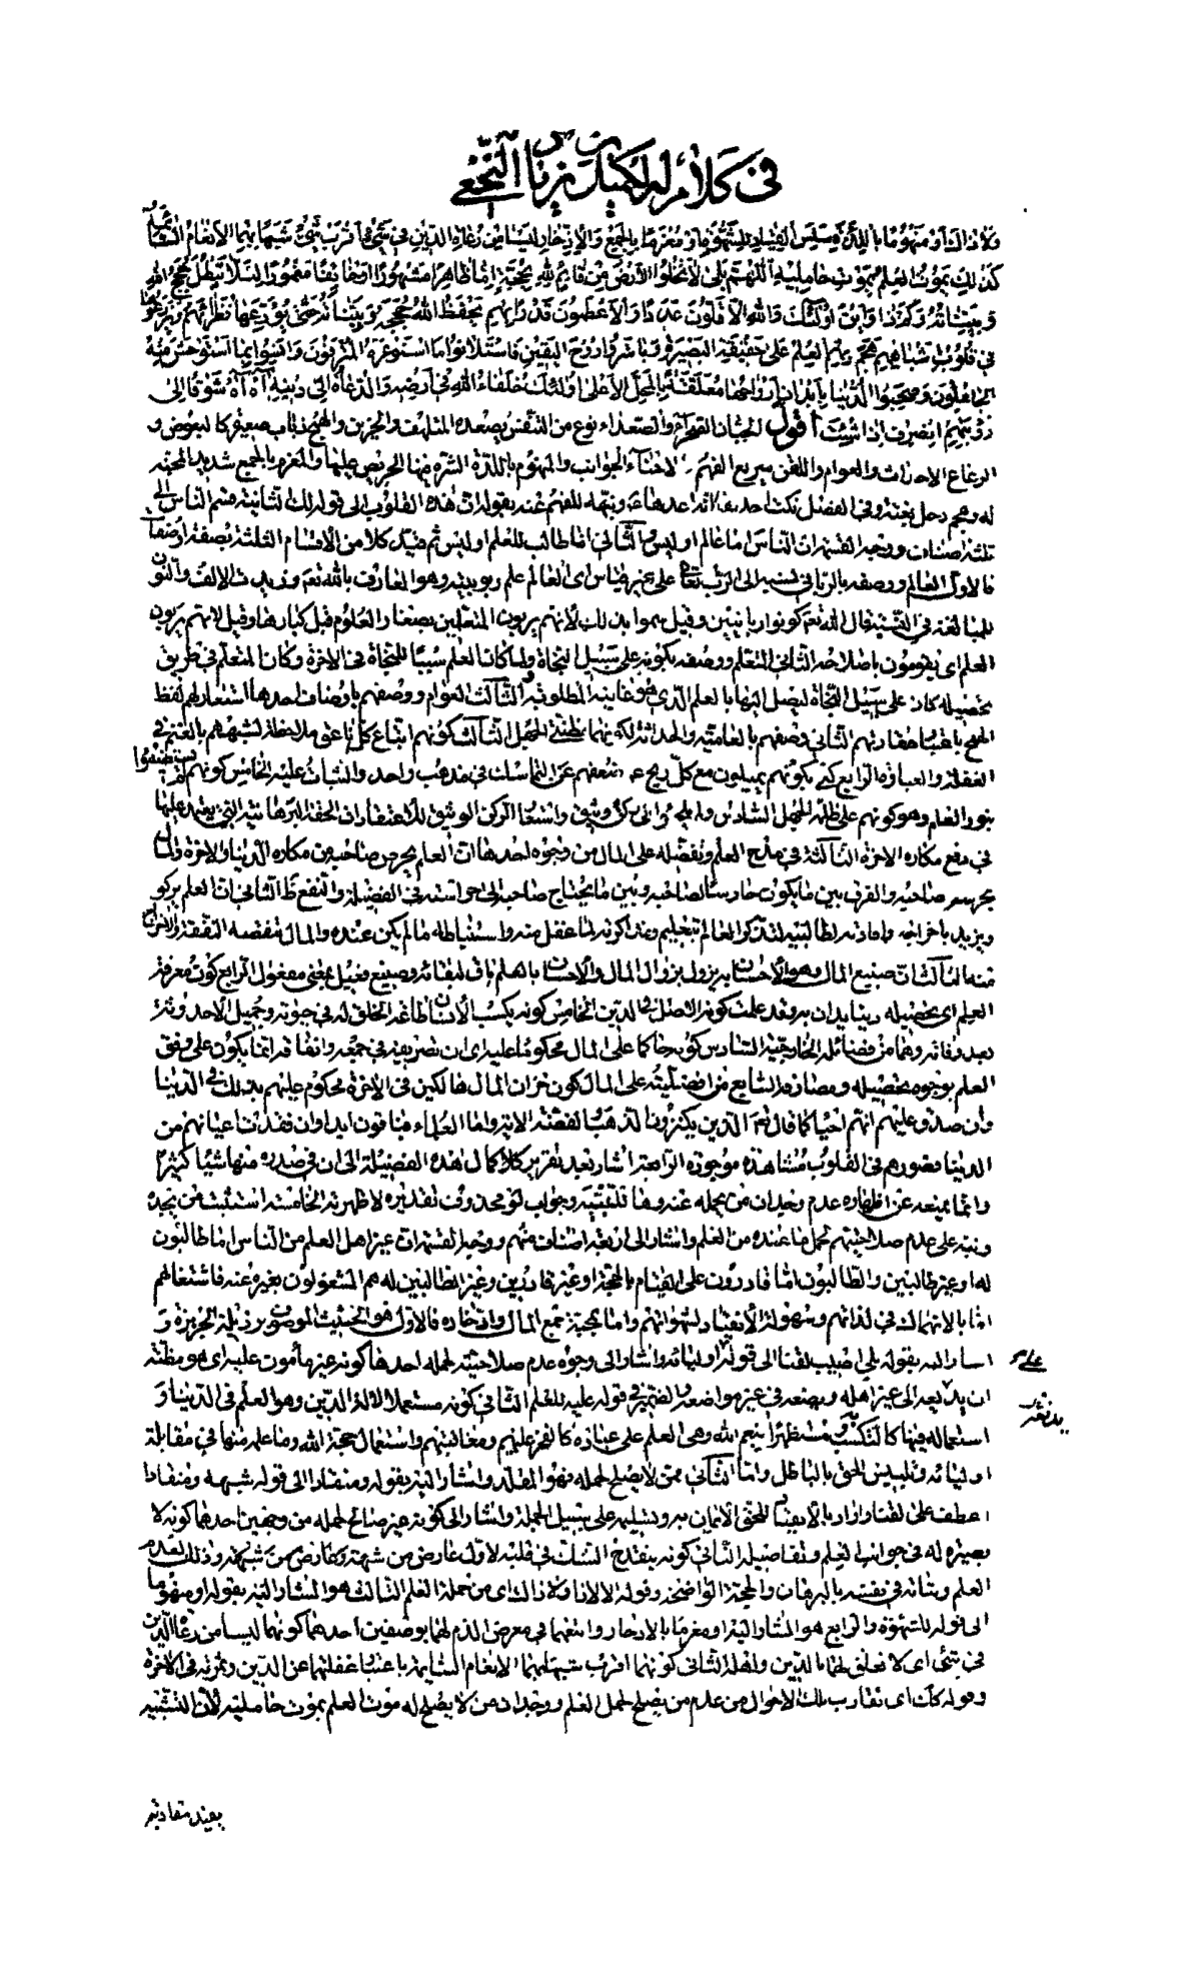 في كلام له لكميل بن زياد النخعي
ولا ذاك أو منهوما باللذة سلس القياد للشهوة أو مغرما بالجمع والادخار ليسا من رعاة الدين في شيء أقرب شيء شبها بهما الأنعام السائمة
كذلك يموت العلم بموت حامليه اللهم بلى لا تخلو الأرض من قائم لله بحجة إما ظاهرا مشهورا أو خائفا مغمورا لئلا تبطل حجج الله
وبيناته وكم ذا وأين أولئك أولئك والله الأقلون عددا والأعظمون قدرا بهم يحفظ الله حججه وبيناته حتى يودعها نظراءهم ويزرعوها
في قلوب أشباههم هجم بهم العلم على حقيقة البصيرة وباشروا روح اليقين فاستلانوا ما استوعره المترفون وأنسوا بما استوحش منه
الجاهلون وصحبوا الدنيا بأبدان أرواحها معلقة بالمحل الأعلى أولئك خلفاء الله في أرضه والدعاة إلى دينه آه آه شوقا إلى
رؤيتهم انصرف إذا شئت أقول الجبان الصحراء والصعداء نوع من التنفس يصعده المتلهف والحزين والهمج ذباب صغيرة كالبعوض و
الرعاع الأحداث والعوام واللقن سريع الفهم والأحناء الجوانب والمنهوم باللذة الشره فيها الحريص عليها والمغرم بالجمع شديد المحبة
له وهجم دخل بغتة وفي الفصل نكت أحدها أنه أعدها له ونبهه للفهم عنه بقوله إن هذه القلوب إلى قوله لك الثانية قسم الناس إلى
ثلثة أصناف ووجه القسمة أن الناس إما عالم أو ليس والثاني إما طالب للعلم أو ليس ثم قيد كلا من الأقسام الثلثة بصفة أو صفات
فالأول العالم ووصفه بالرباني نسبة إلى الرب تعالى على غير قياس أي العالم علم ربوبيته وهو العارف بالله تعالى وزيدت الألف والنون
للمبالغة في النسبة قال الله تعالى كونوا ربانيين وقيل سموا بذلك لأنهم يربون المتعلمين بصغار العلوم قبل كبارها وقيل لأنهم يربون
العلم أي يقومون بإصلاحه الثاني المتعلم ووصفه بكونه على سبيل النجاة ولما كان العلم سببا للنجاة في الآخرة وكان المتعلم في طريق
تحصيله كان على سبيل النجاة ليصل إليها بالعلم الذي هو غايته المطلوبة الثالث العوام ووصفهم بأوصاف أحدها استعار لهم لفظ
الهمج باعتبار حقارتهم الثاني وصفهم بالعامية والحداثة لكونهما مظنة الجهل الثالث كونهم أتباع كل ناعق ملاحظة لشبههم بالغنم في
الغفلة والغباوة الرابع كنى بكونهم يميلون مع كل ريح عن ضعفهم عن التماسك في مذهب واحد والثبات عليه الخامس كونهم لم يستضيئوا
بنور العلم وهو كونهم على ظلمة الجهل السادس ولم يلجأوا إلى ركن وثيق واستعار الركن الوثيق للاعتقادات الحقة البرهانية التي يعتمد عليها
في دفع مكاره الآخرة الثالثة في مدح العلم وتفضيله على المال من وجوه أحدها أن العلم يحرس صاحبه من مكاره الدنيا والآخرة والمال
يحرسه صاحبه والفرق بين ما يكون حارسا لصاحبه وبين ما يحتاج صاحبه إلى حراسته في الفضيلة والنفع ظ الثاني أن العلم يزكو
ويزيد بإخراجه وإفادته لطالبيه لتذكر العالم بتعليمه ومذاكرته لما غفل منه واستنباطه ما لم يكن عنده والمال تنقصه النفقة والإخراج
منه الثالث أن صنيع المال وهو الإحسان به يزول بزوال المال والإحسان بالعلم باق لبقائه وصنيع فعيل بمعنى مفعول الرابع كون معرفة
العلم أي تحصيله دينا يدان به وقد علمت كونه الأصل في الدين الخامس كونه يكسب الإنسان طاعة الخلق له في حيوته وجميل الأحدوثة
بعد وفاته وهما من فضائله الخارجية السادس كونه حاكما على المال والمال محكوما عليه أي أن تصريفه في جمعه وإنفاقه إنما يكون على وفق
العلم بوجوه تحصيله ومصارفه السابع من أفضليته على المال كون خزان المال هالكين في الآخرة محكوم عليهم بذلك في الدنيا
وإن صدق عليهم أنهم أحياء كما قال تعالى الذين يكنزون الذهب والفضة الآية وأما العلماء فباقون أبدا وإن فقدت أعيانهم من
الدنيا فصورهم في القلوب مشاهدة موجودة الرابعة أشار بعد تقرير كمال هذه الفضيلة إلى أن في صدره منها شيئا كثيرا
وإنما يمنعه عن إظهاره عدم وجدان من يحمله عنه وها للتنبيه وجواب لو محذوف تقديره لأظهرته الخامسة استثبت من يجده
ونبه على عدم صلاحيتهم لحمل ما عنده من العلم وأشار إلى أربعة أصناف منهم ووجه القسمة أن غير أهل العلم من الناس إما طالبون
له أو غير طالبين والطالبون إما قادرون على القيام بالحجة أو غير قادرين وغير الطالبين له هم المشغولون بغيره عنه فاشتغالهم
إما بالانهماك في لذاتهم وسهولة الانقياد لشهواتهم وإما بمحبة جمع المال وادخاره فالأول هو الخبيث الموصوف برذيلة الجربزة و
أشار إليه بقوله بلى أصيب لقنا إلى قوله أوليائه وأشار إلى وجوه عدم صلاحيته لحمله أحدها كونه غير مأمون عليه أي هو مظنة
أن يذيعه إلى غير أهله ويضعه في غير مواضعه والضمير في قوله عليه للعلم الثاني كونه مستعملا لآلة الدين وهو العلم في الدنيا و
استعماله فيها كالتكسب به ومستظهرا بنعم الله وهي العلم على عباده كالفخر عليهم ومغالبتهم واستعمال حجة الله وما علمه منها في مقابلة
أوليائه وتلبيس الحق بالباطل وأما الثاني ممن لا يصلح لحمله فهو المقلد وأشار إليه بقوله ومنقادا إلى قوله شبهة ومنقادا
عطف على لقنا وأراد بالانقياد للحق الإيمان به وتسليمه على سبيل الجملة وأشار إلى كونه غير صالح لحمله من وجهين أحدهما كونه لا
بصيرة له في جوانب العلم وتفاصيله الثاني كونه ينقدح الشك في قلبه لأول عارض من شبهة وعارض من شبهة وذلك لعدم
العلم وثباته في نفسه بالبرهان والحجة الواضحة وقوله ألا لا ذا ولا ذاك أي من حملة العلم الثالث هو المشار إليه بقوله أو منهوما
إلى قوله للشهوة والرابع هو المشار إليه أو مغرما بالادخار واتبعهما في معرض الذم لهما بوصفين أحدهما كونهما ليسا من رعاة الدين
في شيء أي لا تعلق لهما بالدين وأهله الثاني كونهما أقرب شبهها بهما الأنعام السائمة باعتبار غفلتهما عن الدين وثمرته في الآخرة
وقوله كذلك أي تقارب تلك الأحوال من عدم من يصلح لحمل العلم ووجدان من لا يصلح له موت العلم بموت حامليه لأن التشبيه
يفيد مقارنة